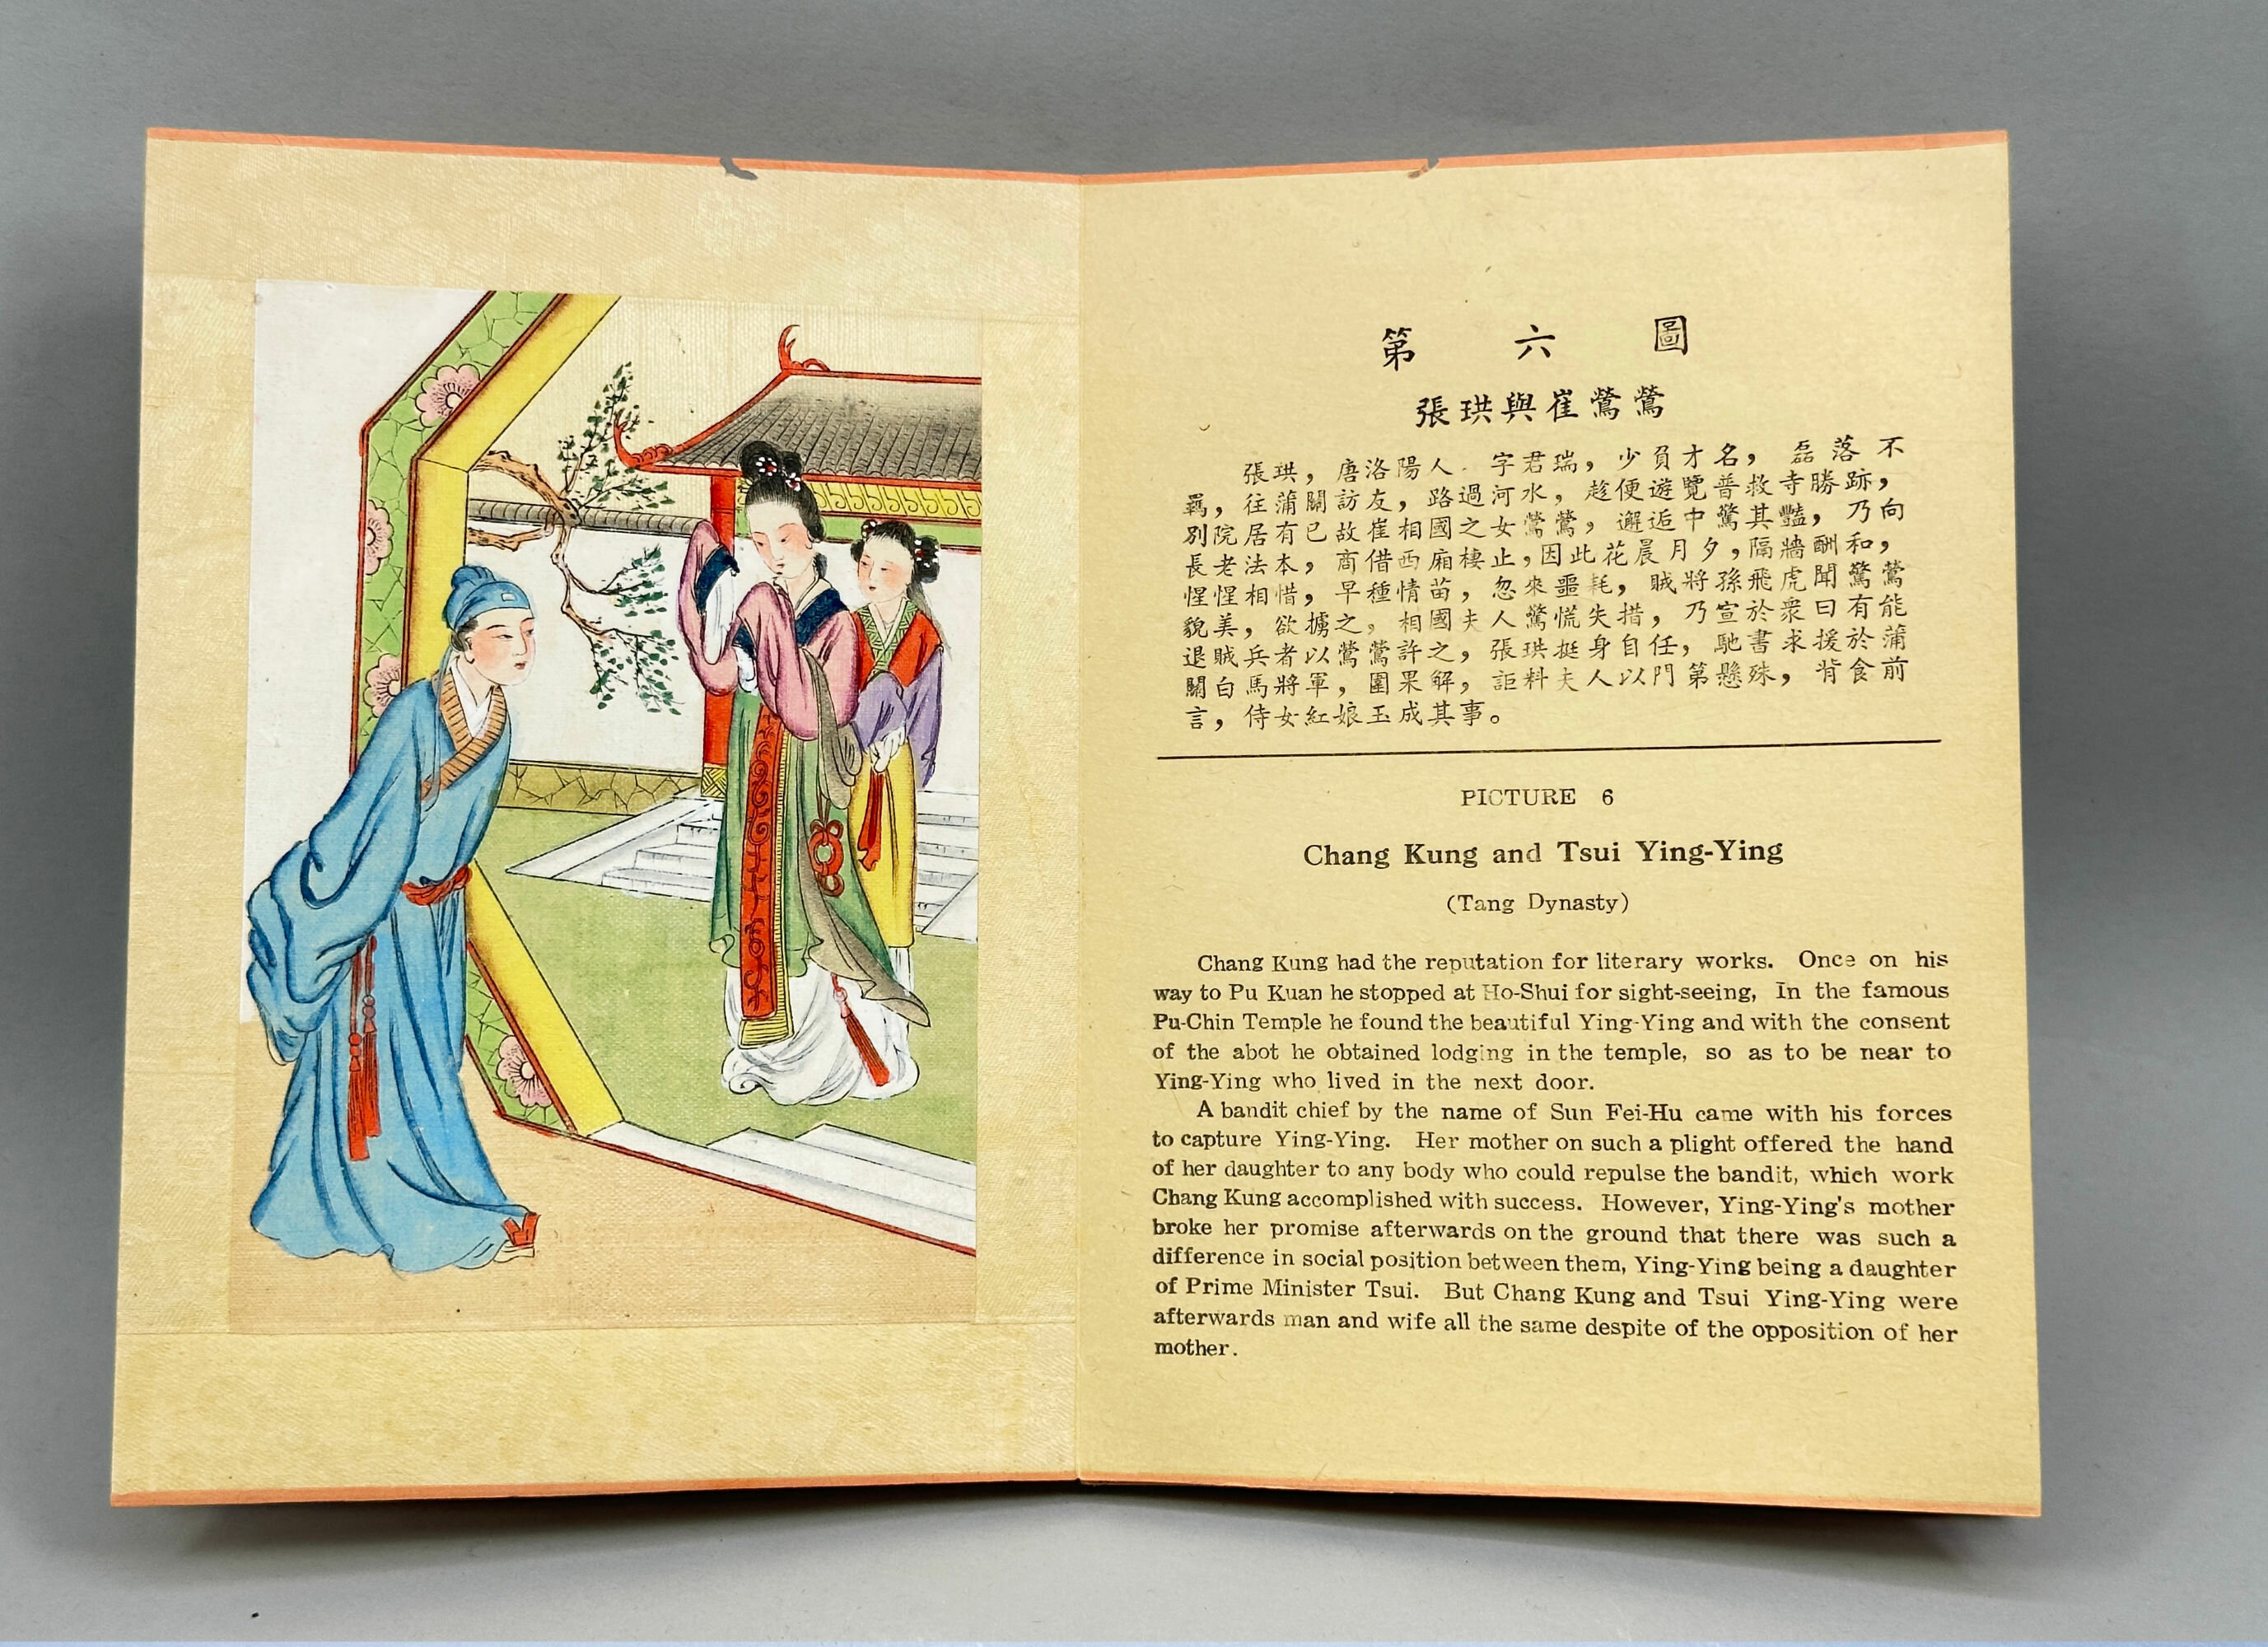 第 六 圖
張珙與崔鶯鶯
張珙，唐洛陽人．字君瑞，少負才名，磊落不
羈，往蒲關訪友，路過河水，趁便遊覽普救寺勝跡，
別院居有已故崔相國之女鶯鶯，邂逅中驚其豔，乃向
長老法本，商借西廂棲止，因此花晨月夕，隔牆酬和，
惺惺相惜，早種情苗，忽來噩耗，賊將孫飛虎聞驚鶯
貌美，欲擄之。相國夫人驚慌失措，乃宣於衆曰有能
退賊兵者以鶯鶯許之，張珙挺身自任，馳書求援於蒲
關白馬將軍，圍果解，詎料夫人以門第懸殊，背食前
言，侍女紅娘玉成其事。
PICTURE 6
Chang Kung and Tsui Ying-Ying
(Tang Dynasty)
Chang Kung had the reputation for literary works. Once on his
way to Pu Kuan he stopped at Ho-Shui for sight-seeing, In the famous
Pu-Chin Temple he found the beautiful Ying-Ying and with the consent
of the abot he obtained lodging in the temple, so as to be near to
Ying-Ying who lived in the next door.
A bandit chief by the name of Sun Fei-Hu came with his forces
to capture Ying-Ying. Her mother on such a plight offered the hand
of her daughter to any body who could repulse the bandit, which work
Chang Kung accomplished with success. However, Ying-Ying's mother
broke her promise afterwards on the ground that there was such a
difference in social position between them, Ying-Ying being a daughter
of Prime Minister Tsui. But Chang Kung and Tsui Ying-Ying were
afterwards man and wife all the same despite of the opposition of her
mother.